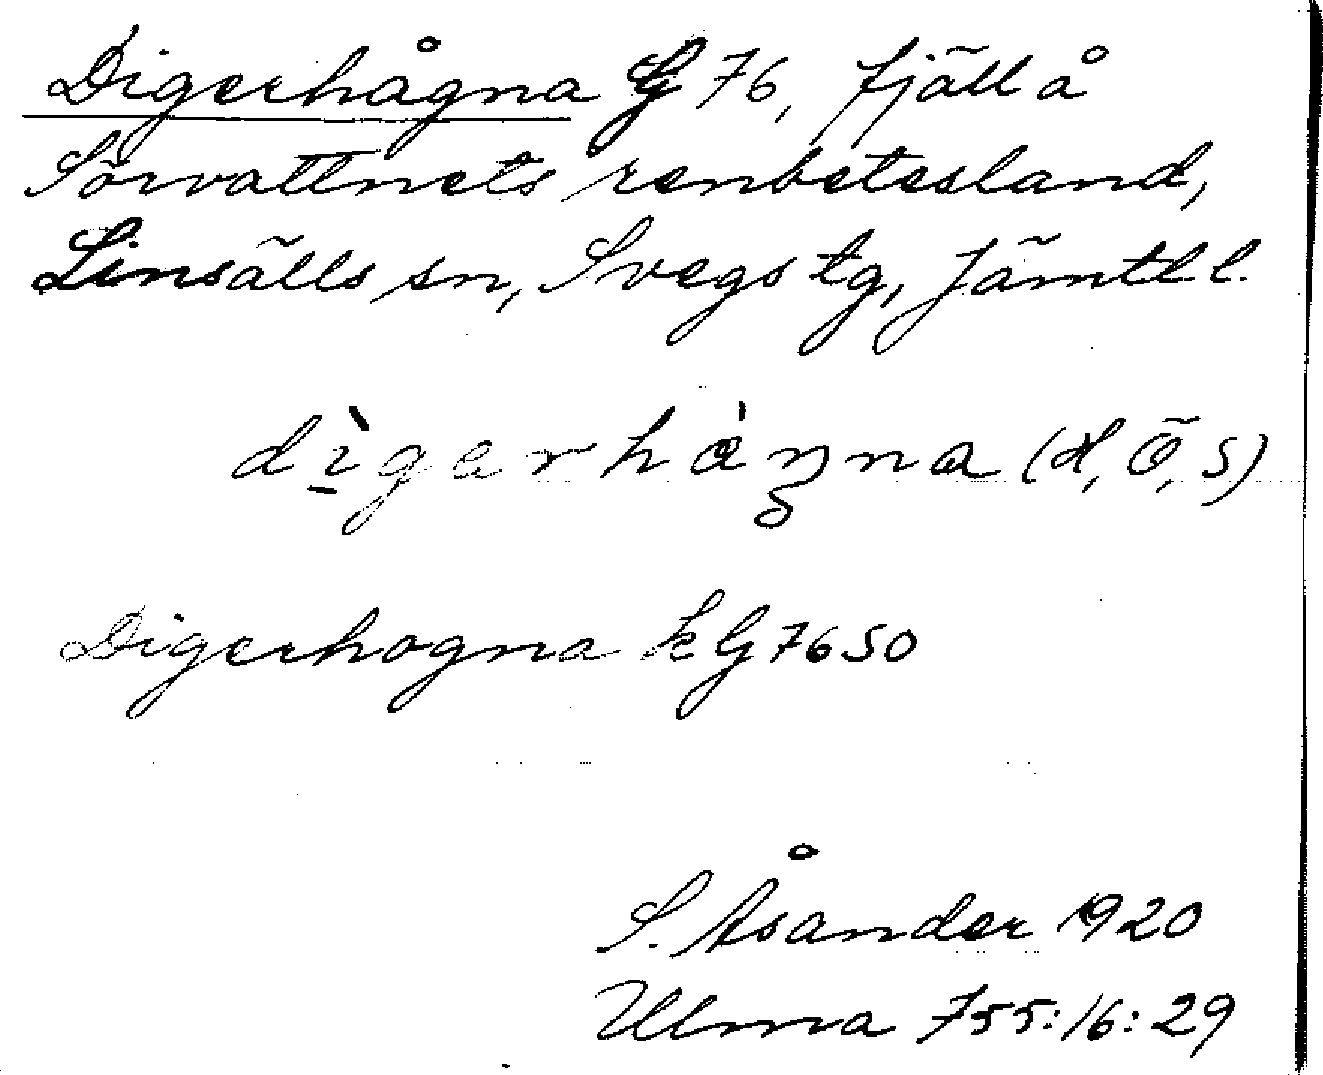 Digerhågna G 76, fjäll å
Sörvattnets renbetesland,
Linsälls sn, Svegs tg, Jämtl l.
dìgerhàŋna (H, Ö, S)
Digerhogna kG7650
S. Åsander 1920
Ulma 755:16:29